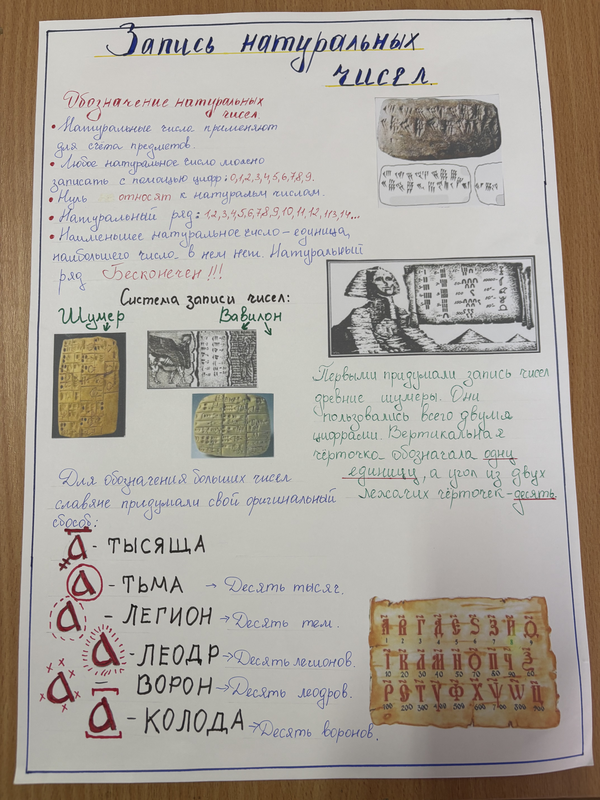 Запись натуральных
чисел.
Обозначение натуральных
чисел
• Натуральные числа применяют
для счета предметов.
• Любое натуральное число можно
записать с помощью цифр: 0,1,2,3,4,5,6,7,8,9.
• Нуль относят к натуральм числам.
• Натуральный ряд: 1,2,3,4,5,6,7,8,9,10,11,12,113,14,..
• Наименьшее натуральное число - единица,
наибольшего число в нем нет. Натуральный
ряд Бесконечен!!!
Система записи чисел:
Шумер
Вавилон
Первыми придумали запись чисел
древние шумеры. Они
пользовались всего двумя
цифрами. Вертикальная
черточка обозначала одну
единицу, а угол из двух
лежачих черточек - десять.
Для обозначения больших чисел
славяне придумали свой оригинальный
способ:
а - ТЫСЯЩА
а - ТЬМА → Десять тысяч.
а - ЛЕГИОН → Десять тем.
а - ЛЕОДР → Десять легионов.
а ВОРОН → Десять леодров.
а - КОЛОДА → Десять воронов.